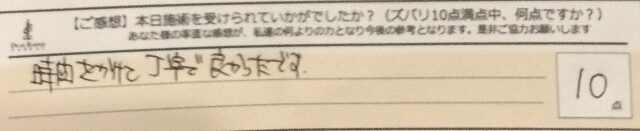 【ご感想】本日施術を受けられていかがでしたか?(ズバリ10点満点中、何点ですか?)
あなた様の率直な感想が、私達の何よりの力となり今後の参考となります。是非ご協力お願いします
時間をかけて丁寧で良かったです。
10
点